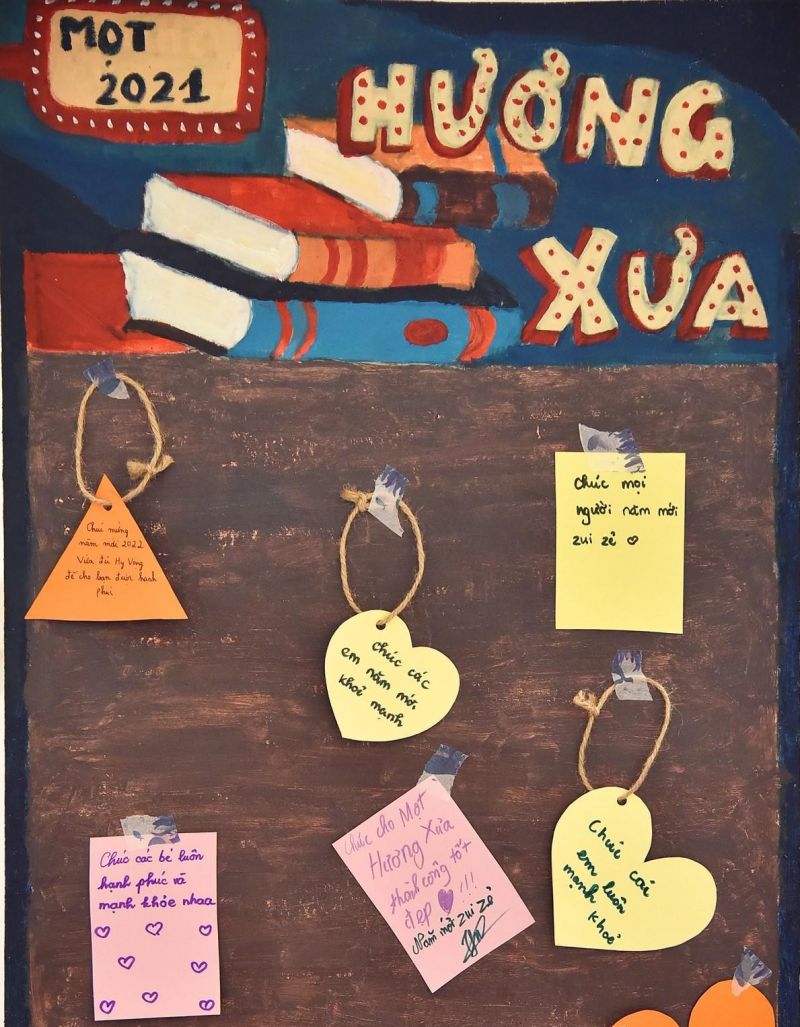 MỌT
2021
HƯƠNG
XƯA
Chúc mừng
năm mới 2022
Hy Vọng
phúc
Chúc các
em năm mới
khoẻ mạnh
Chúc mọi
người năm mới
zui zẻ
Chúc các bé luôn
hạnh phúc và
mạnh khỏe nhaa
Chúc cho Mọt
Hương Xưa
thành công tốt
đẹp !!!
Năm mới zui zẻ
Chúc các
em luôn
mạnh khoẻ